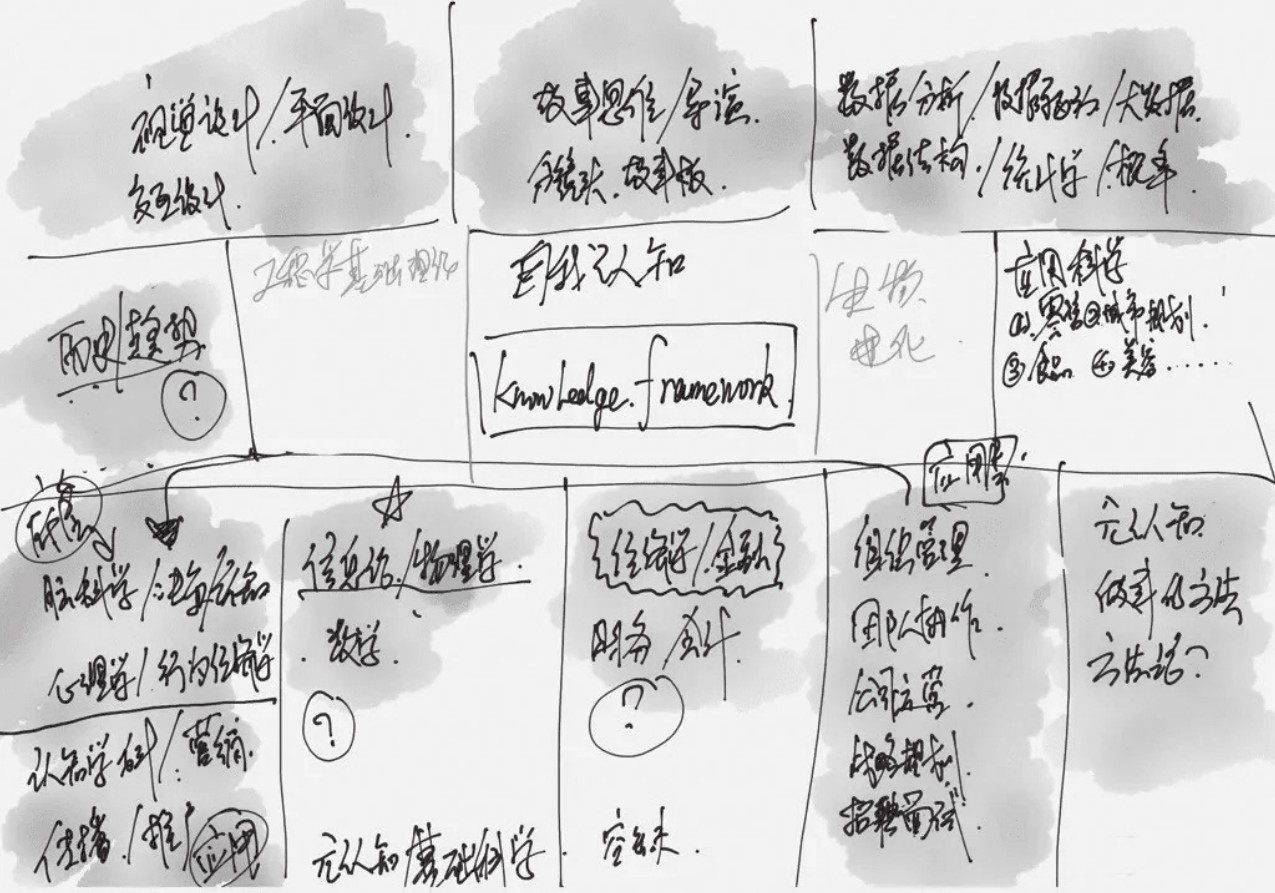 视觉设计/平面设计.
交互设计.
故事思维/导演.
分镜头.故事板.
数据分析/数据驱动/大数据.
数据结构./统计学/概率.
历史/趋势
?
工程学基础理论
自我认知
Knowledge.framework.
生物
进化
应用科学
①.零售②城市规划.
③.食品 ④美容......
脑科学/决策认知
心理学/行为经济学
认知学科/营销.
传播/推广
应用
信息论/物理学.
数学.
?
元认知/基础科学.
经济学/金融
财务/会计.
?
空缺.
应用类.
组织管理.
团队协作.
公司运营.
战略规划.
招聘面试.
元认知.
做事的方法
方法论?